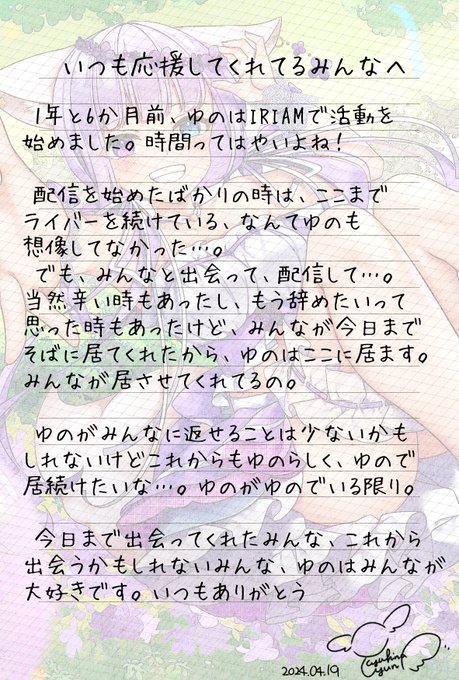 いつも応援してくれてるみんなへ
1年と6か月前、ゆのはIRIAMで活動を
始めました。時間ってはやいよね！
配信を始めたばかりの時は、ここまで
ライバーを続けている、なんてゆのも
想像してなかった…。
でも、みんなと出会って、配信して…。
当然辛い時もあったし、もう辞めたいって
思った時もあったけど、みんなが今日まで
そばに居てくれたから、ゆのはここに居ます。
みんなが居させてくれてるの。
ゆのがみんなに返せることは少ないかも
しれないけどこれからもゆのらしく、ゆので
居続けたいな…。ゆのがゆのでいる限り。
今日まで出会ってくれたみんな、これから
出会うかもしれないみんな、ゆのはみんなが
大好きです。いつもありがとう
2024.04.19